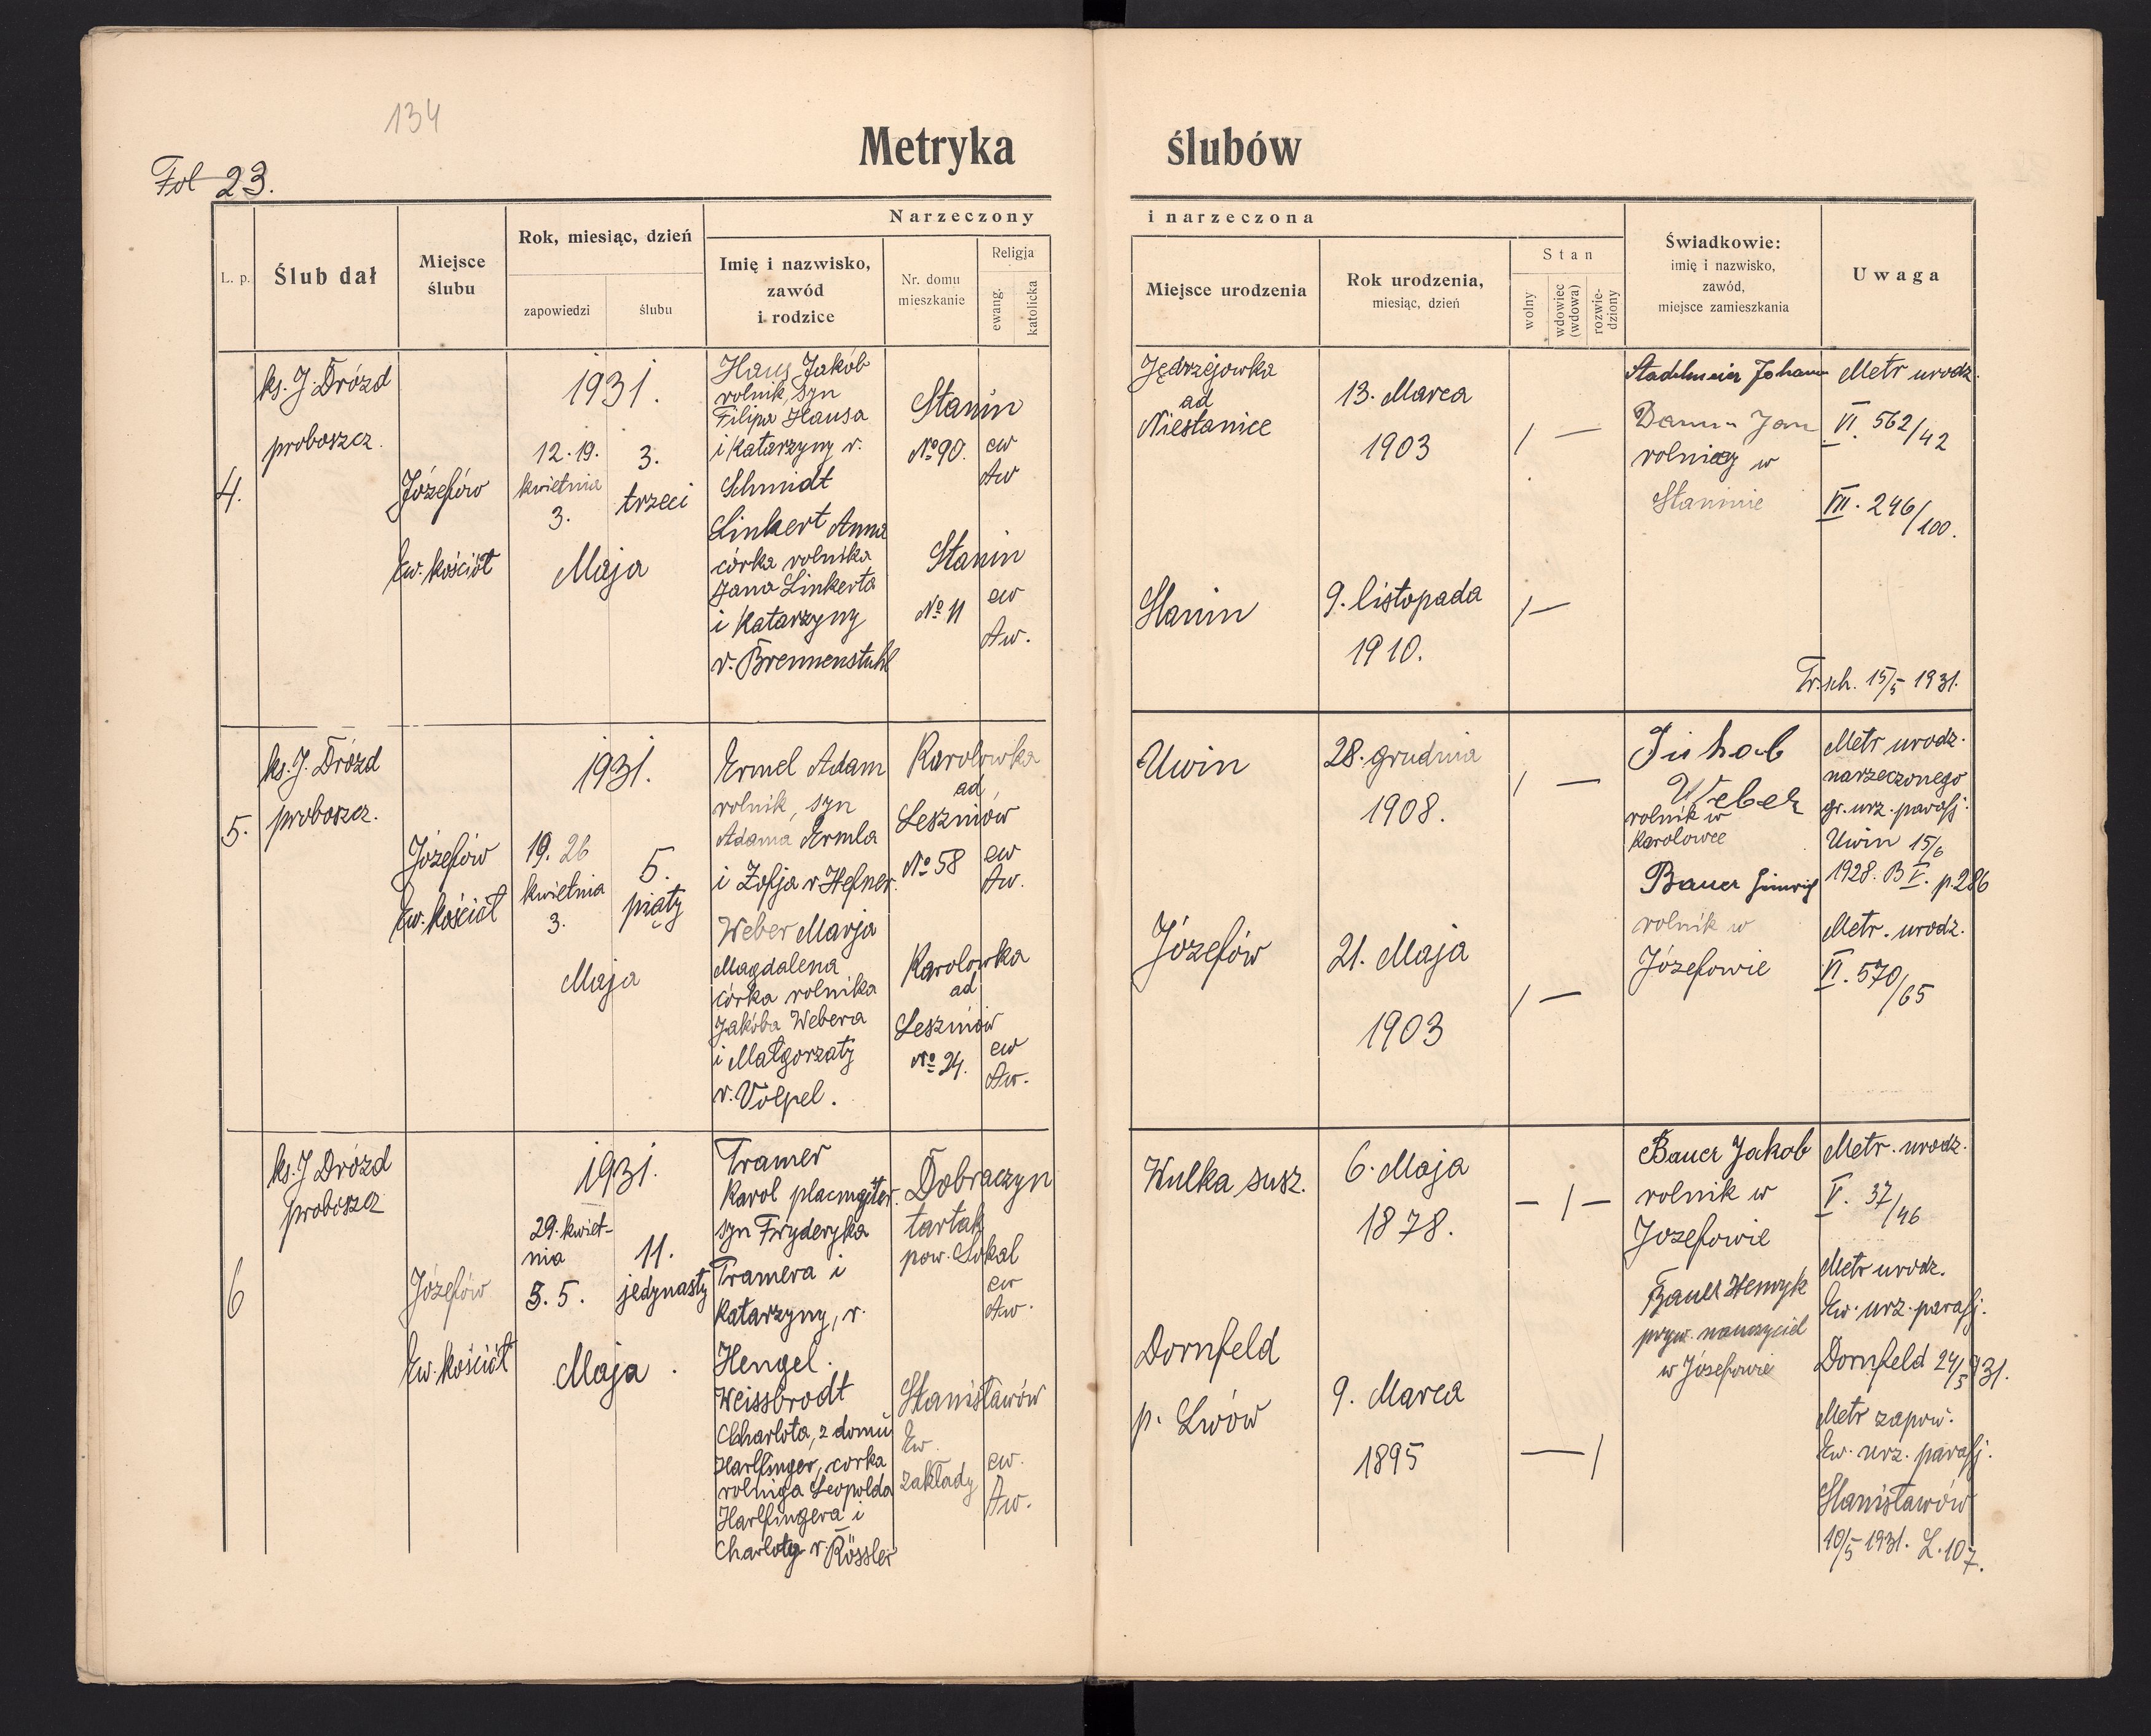 134
Fol 23.
Metryka ślubów
L. p.
Ślub dał
Miejsce
ślubu
Rok, miesiąc, dzień
zapowiedzi
ślubu
Narzeczony
Imię i nazwisko,
zawód
i rodzice
Nr. domu
mieszkanie
Religja
ewang.
katolicka
i narzeczona
Miejsce urodzenia
Rok urodzenia,
miesiąc, dzień
Stan
wolny
wdowiec
(wdowa)
rozwie-
dziony
Świadkowie:
imię i nazwisko,
zawód,
miejsce zamieszkania
Uwaga
4.
ks. J. Drózd
proboszcz.
Józefów
Ew. kościół
1931.
12. 19.
kwietnia
3.
3.
trzeci
Maja
Haus Jakób
rolnik, syn
Filipa Hausa
i Katarzyny r.
Schmidt
Stanin
№ 90.
ew
Aw
Linkert Anna
córka rolnika
Jana Linkerta
i Katarzyny
r. Brennenstuhl
Stanin
№ 11
ew
Aw.
Jędrzejowka
ad
Niestanice
13. Marca
1903
/ —
Stanin
9. listopada
1910.
/ —
Stadelmeier Johann
Jan
rolnicy w
Staninie
Metr urodz.
VI. 562/42
VII. 246/100.
Tr. sch. 15/5 1931.
5.
ks. J. Drózd
proboszcz.
Józefów
Ew. kościół
1931.
19. 26
kwietnia
3.
5.
piąty
Maja
Ermel Adam
rolnik, syn
Adama Ermla
i Zofja r Hefner.
Karolowka
ad
Leszniów
№ 58
ew
Aw.
Weber Marja
Magdalena
córka rolnika
Jakóba Webera
i Małgorzaty
r. Volpel.
Karolowka
ad
Leszniów
№ 24.
ew
Aw.
Uwin
28. grudnia
1908.
/ —
Józefów
21. Maja
1903
/ —
Weber
rolnik w
Karolowce
Bauer
rolnik w
Józefowie
Metr urodz.
narzeczonego
gr. urz. parafj.
Uwin 15/6
1928. B V. p. 286
Metr. urodz.
VI. 570/65
6
ks. J Drózd
proboszcz
Józefów
Ew. kościół
1931.
29. kwiet-
nia
3. 5.
11.
jedynasty
Maja.
Tramer
Karol placmajster.
syn Fryderyka
Tramera i
Katarzyny, r.
Hengel.
Dobraczyn
tartak
pow. Sokal
ew
Aw.
Weissbrodt
Charlota, z domu
Harlfinger, corka
rolniga Leopolda
Harlfingera i
Charloty r. Rössler
Stanisławów
Ew.
zakłady
ew.
Aw.
Wulka susz.
6. Maja
1878.
— / —
Dornfeld
p. Lwów
9. Marca
1895
— /
Bauer Jakob
rolnik w
Jozefowie
Bauer Henryk
pryw. nauczyciel
w Józefowie
Metr. urodz.
V. 37/46
Metr urodz.
Ew. urz. parafj.
Dornfeld 24/5 931.
Metr zapow.
Ew. urz. parafj.
Stanisławów
10/5 1931. L. 107.